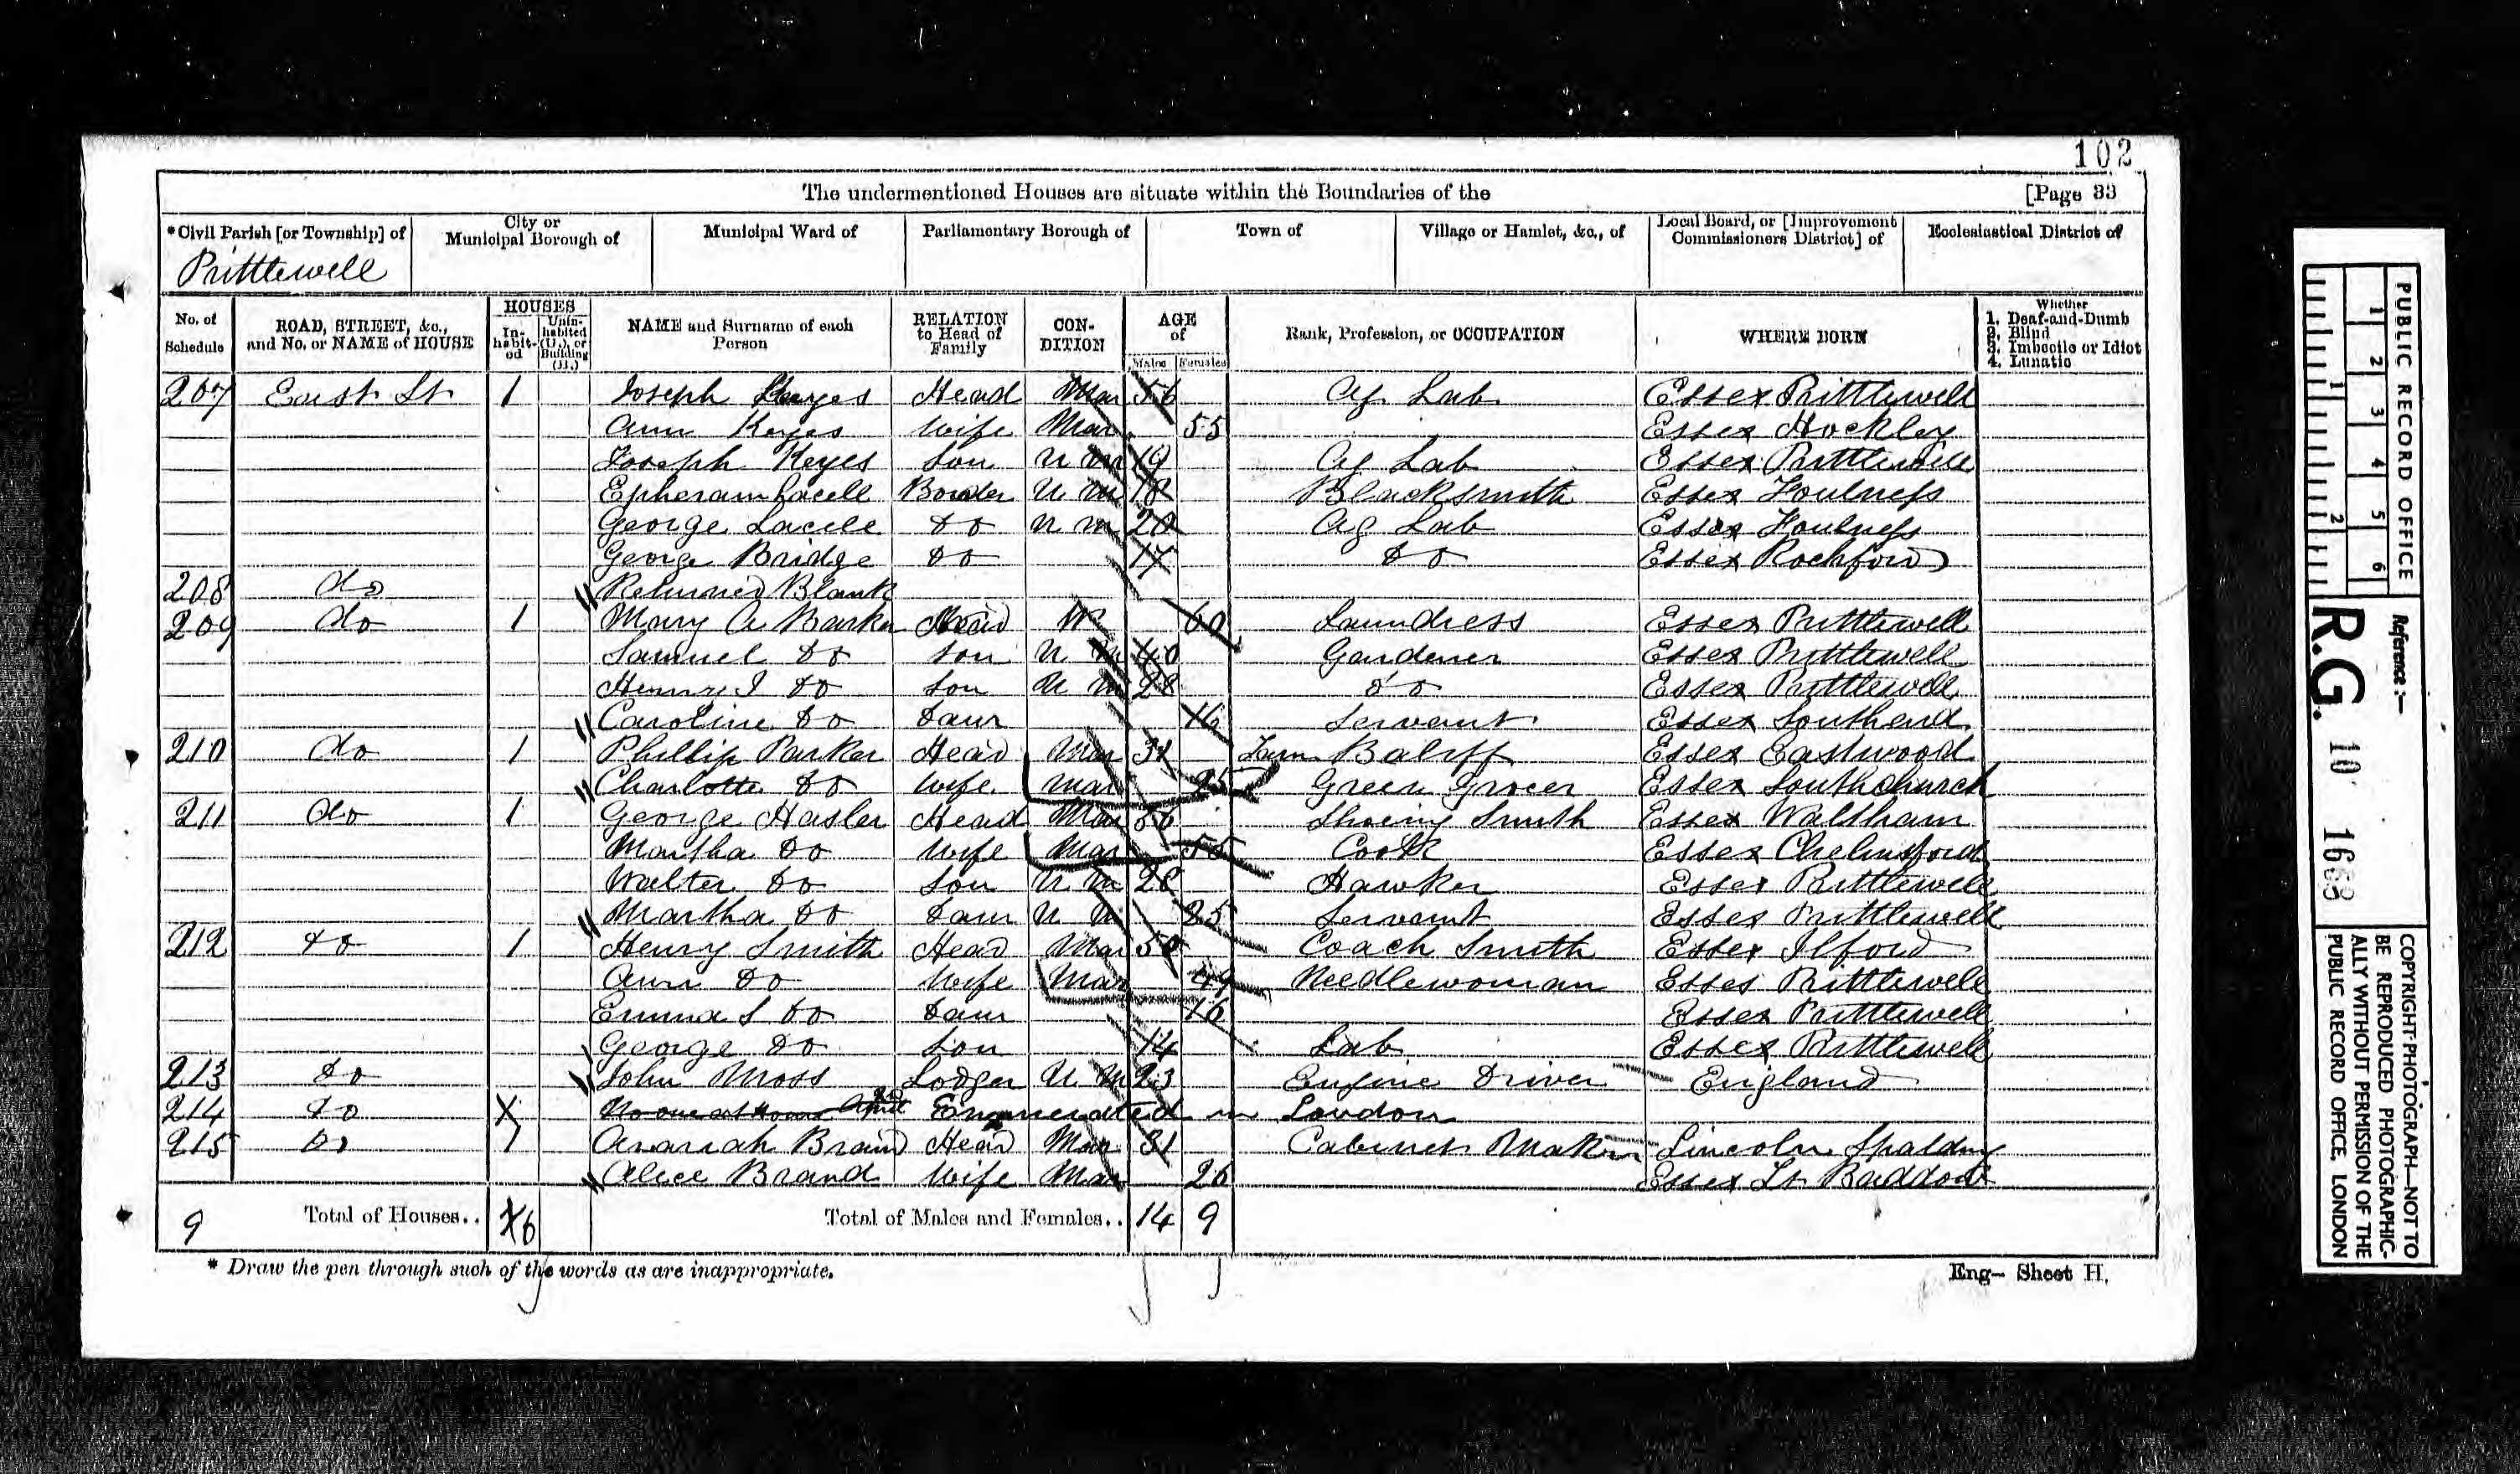 102
The undermentioned Houses are situate within the Boundaries of the [Page 33
*Civil Parish [or Township] of
City or Municipal Borough of
Municipal Ward of
Parliamentary Borough of
Town of
Village or Hamlet, &c., of
Local Board, or [Improvement Commissioners District] of
Ecclesiastical District of
Prittlewell
No. of Schedule
ROAD, STREET, &c., and No. or NAME of HOUSE
HOUSES
In-habit-ed
Unin-habited (U.), or Building (B.)
NAME and Surname of each Person
RELATION to Head of Family
CON-DITION
AGE of
Males Females
Rank, Profession, or OCCUPATION
WHERE BORN
Whether
1. Deaf-and-Dumb
2. Blind
3. Imbecile or Idiot
4. Lunatic
207 East St 1 Joseph Keyes Head Mar 56 Ag Lab Essex Prittlewell
Ann Keyes Wife Mar 55 Essex Hockley
Joseph Keyes Son U m 19 Ag Lab Essex Prittlewell
Epheram Lacell Boarder U m 18 Blacksmith Essex Foulness
George Lacell Do U m 20 Ag Lab Essex Foulness
George Bridge Do 17 Do Essex Rochford
208 do Returned Blank
209 do 1 Mary A Barker Head W 60 Laundress Essex Prittlewell
Samuel Do Son U m 40 Gardener Essex Prittlewell
Henry J Do Son U m 28 Do Essex Prittlewell
Caroline Do Daur 16 Servant Essex Southend
210 do 1 Phillip Parker Head Mar Farm Baliff Essex Eastwood
Charlotte Do Wife Mar 25 Green Grocer Essex Southchurch
211 do 1 George Hasler Head Mar 56 Shoeing Smith Essex Waltham
Martha Do Wife Mar 55 Cook Essex Chelmsford
Walter Do Son U m 28 Hawker Essex Prittlewell
Martha Do Daur U m 25 Servant Essex Prittlewell
212 Do 1 Henry Smith Head Mar 50 Coach Smith Essex Ilford
Ann Do Wife Mar 49 Needlewoman Essex Prittlewell
Emma S Do Daur 16 Essex Prittlewell
George Do Son 14 Lab Essex Prittlewell
213 Do John Moss Lodger U m 23 Engine Driver England
214 Do No one at Home Enumerated in London
215 Do 1 Head Mar 31 Cabinet Maker Lincoln Spalding
Alice Brand Wife Mar 26 Essex Lt Baddow
9 Total of Houses.. 6 Total of Males and Females.. 14 9
* Draw the pen through such of the words as are inappropriate.
Eng- Sheet H.
PUBLIC RECORD OFFICE
1 2 3 4 5 6
1 2
Reference :-
R.G. 10 1669
COPYRIGHT PHOTOGRAPH—NOT TO
BE REPRODUCED PHOTOGRAPHIC-
ALLY WITHOUT PERMISSION OF THE
PUBLIC RECORD OFFICE, LONDON